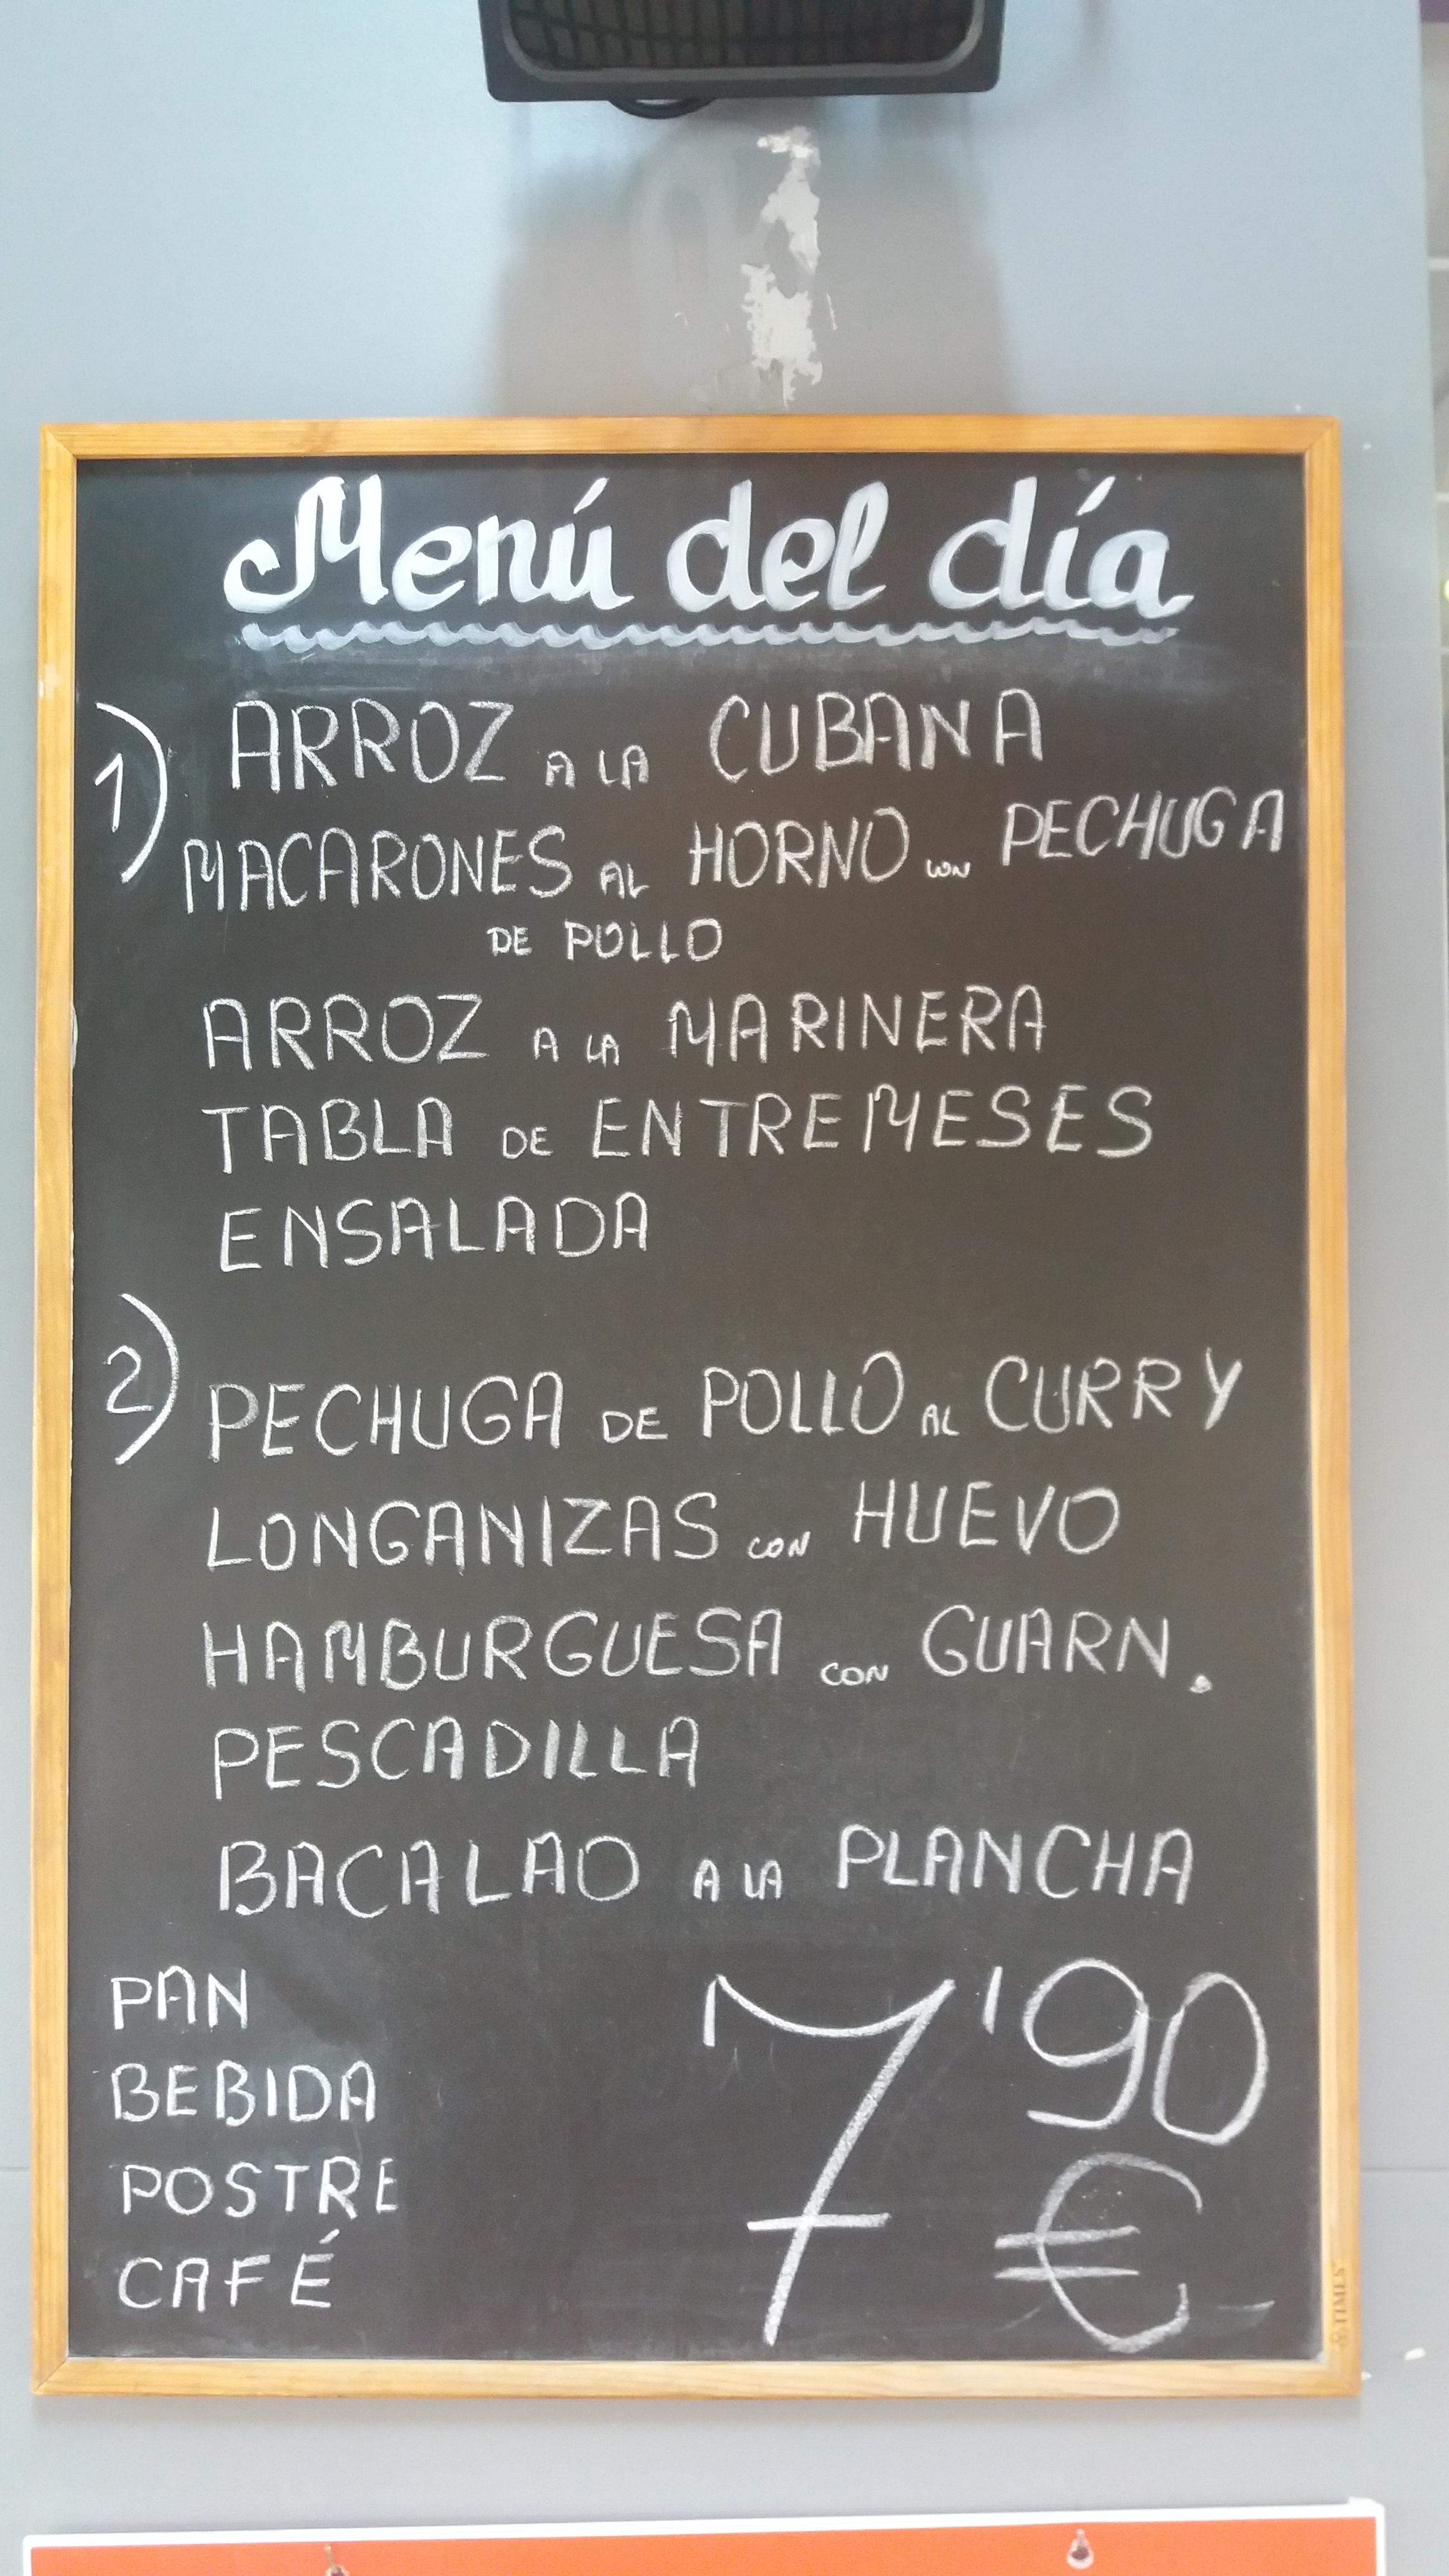 Menú del día
1) ARROZ A LA CUBANA
MACARONES AL HORNO CON PECHUGA
DE POLLO
ARROZ A LA MARINERA
TABLA DE ENTREMESES
ENSALADA
2) PECHUGA DE POLLO AL CURRY
LONGANIZAS CON HUEVO
HAMBURGUESA CON GUARN.
PESCADILLA
BACALAO A LA PLANCHA
PAN
BEBIDA
POSTRE
CAFÉ
7'90
€
TIMES